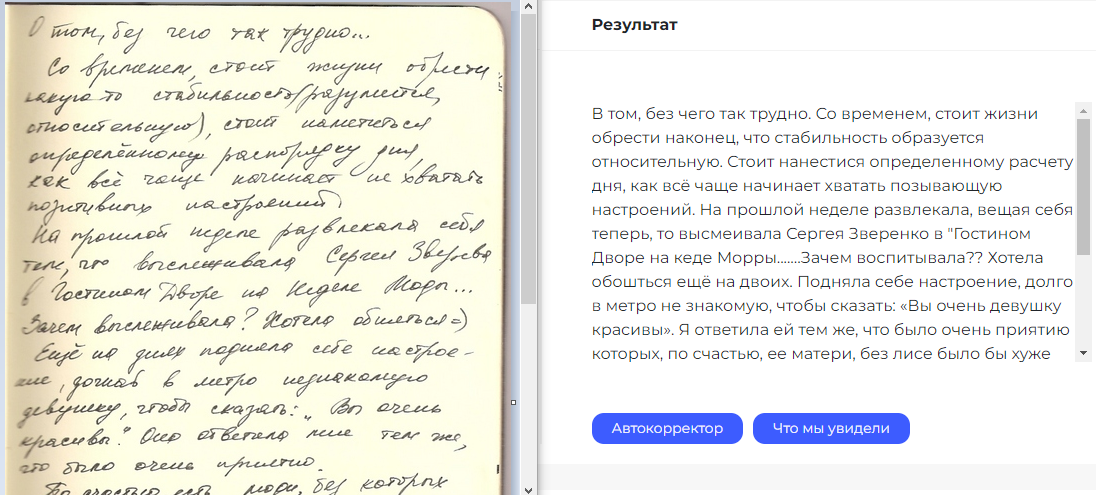 О том, без чего так трудно...
Со временем, стоит жизни обрести
какую-то стабильность (разумеется,
относительную), стоит наметиться
определённому распорядку дня,
как всё чаще начинает не хватать
позитивных настроений.
На прошлой неделе развлекала себя
тем, что выслеживала Сергея Зверева
в Гостином Дворе на Неделе Моды...
Зачем выслеживала? Хотела обняться =)
Ещё на днях подняла себе настрое-
ние, догнав в метро незнакомую
девушку, чтобы сказать: „Вы очень
красивы." Она ответила мне тем же,
что было очень приятно.
По счастью есть люди, без которых
Результат
В том, без чего так трудно. Со временем, стоит жизни
обрести наконец, что стабильность образуется
относительную. Стоит нанестися определенному расчету
дня, как всё чаще начинает хватать позывающую
настроений. На прошлой неделе развлекала, вещая себя
теперь, то высмеивала Сергея Зверенко в "Гостином
Дворе на кеде Морры.......Зачем воспитывала?? Хотела
обошться ещё на двоих. Подняла себе настроение, долго
в метро не знакомую, чтобы сказать: «Вы очень девушку
красивы». Я ответила ей тем же, что было очень приятию
которых, по счастью, ее матери, без лисе было бы хуже
Автокорректор
Что мы увидели